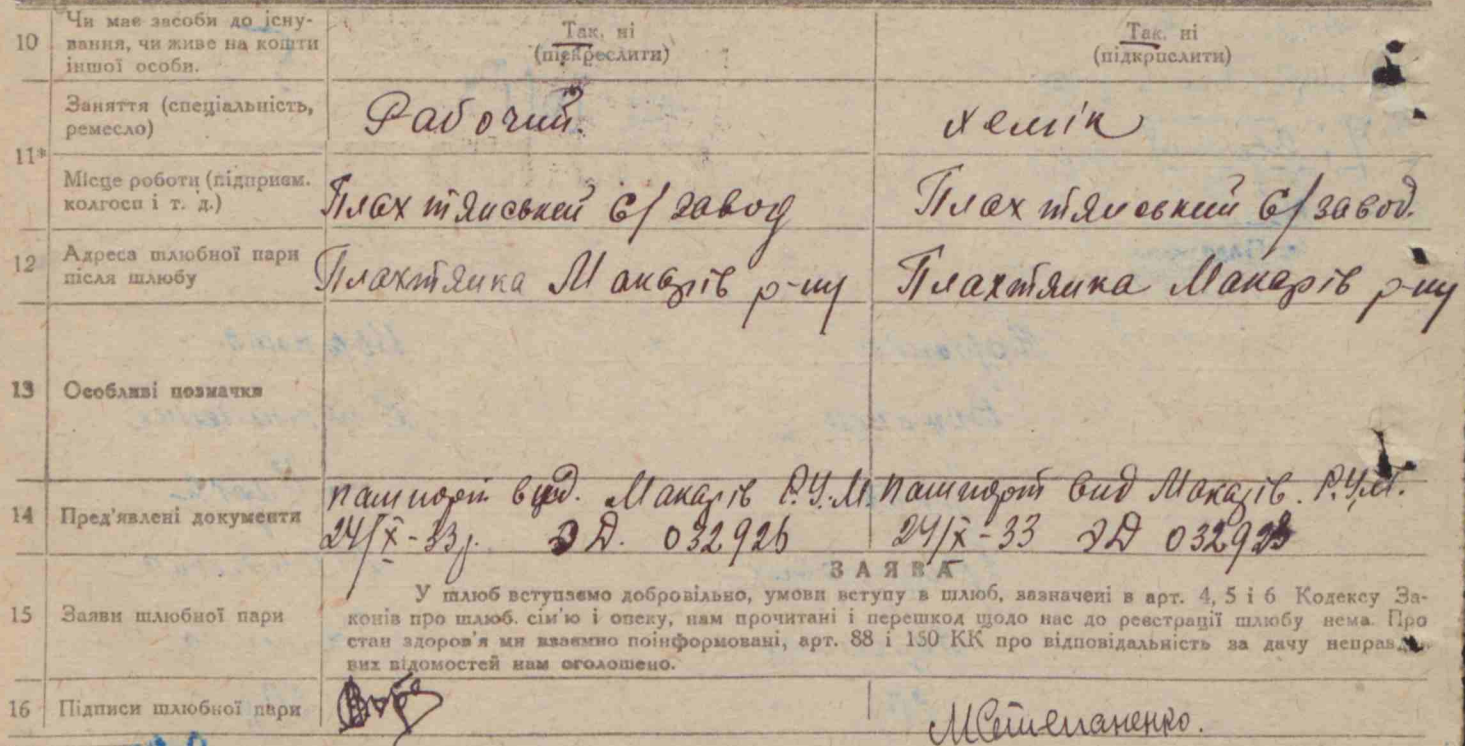 10 Чи має засоби до існу-
вання, чи живе на кошти
іншої особи.
Так, ні
(підкреслити)
Так, ні
(підкрпслити)
11*
Заняття (спеціальність,
ремесло)
Рабочий.
хемік
Місце роботи (підприєм.
колгосп і т. д.)
Плахтянський с/завод
Плахтянський с/завод.
12 Адреса шлюбної пари
після шлюбу
Плахтянка Макарів р-ну
Плахтянка Макарів р-ну
13 Особливі позначки
14 Пред'явлені документи
пашпорт вид. Макарів Р.У.М.
24/X-33р. ЭД. 032926
пашпорт вид Макарів. Р.У.М.
24/X-33 ЭД
15 Заяви шлюбної пари
ЗАЯВА
У шлюб вступаємо добровільно, умови вступу в шлюб, зазначені в арт. 4, 5 і 6 Кодексу За-
конів про шлюб. сім'ю і опеку, нам прочитані і перешкод щодо нас до реєстрації шлюбу нема. Про
стан здоров'я ми взаємно поінформовані, арт. 88 і 150 КК про відповідальність за дачу неправди-
вих відомостей нам оголошено.
16 Підписи шлюбної пари
МСтепаненко.